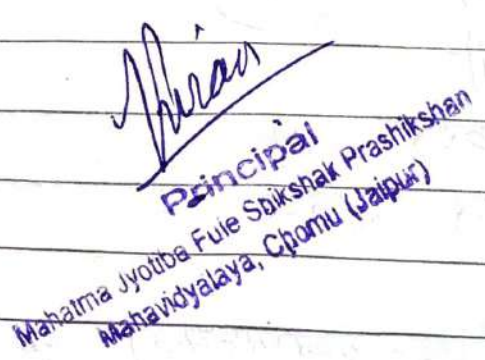 Kiran
Principal
Mahatma Jyotiba Fule Shikshak Prashikshan
Mahavidyalaya, Chomu (Jaipur)